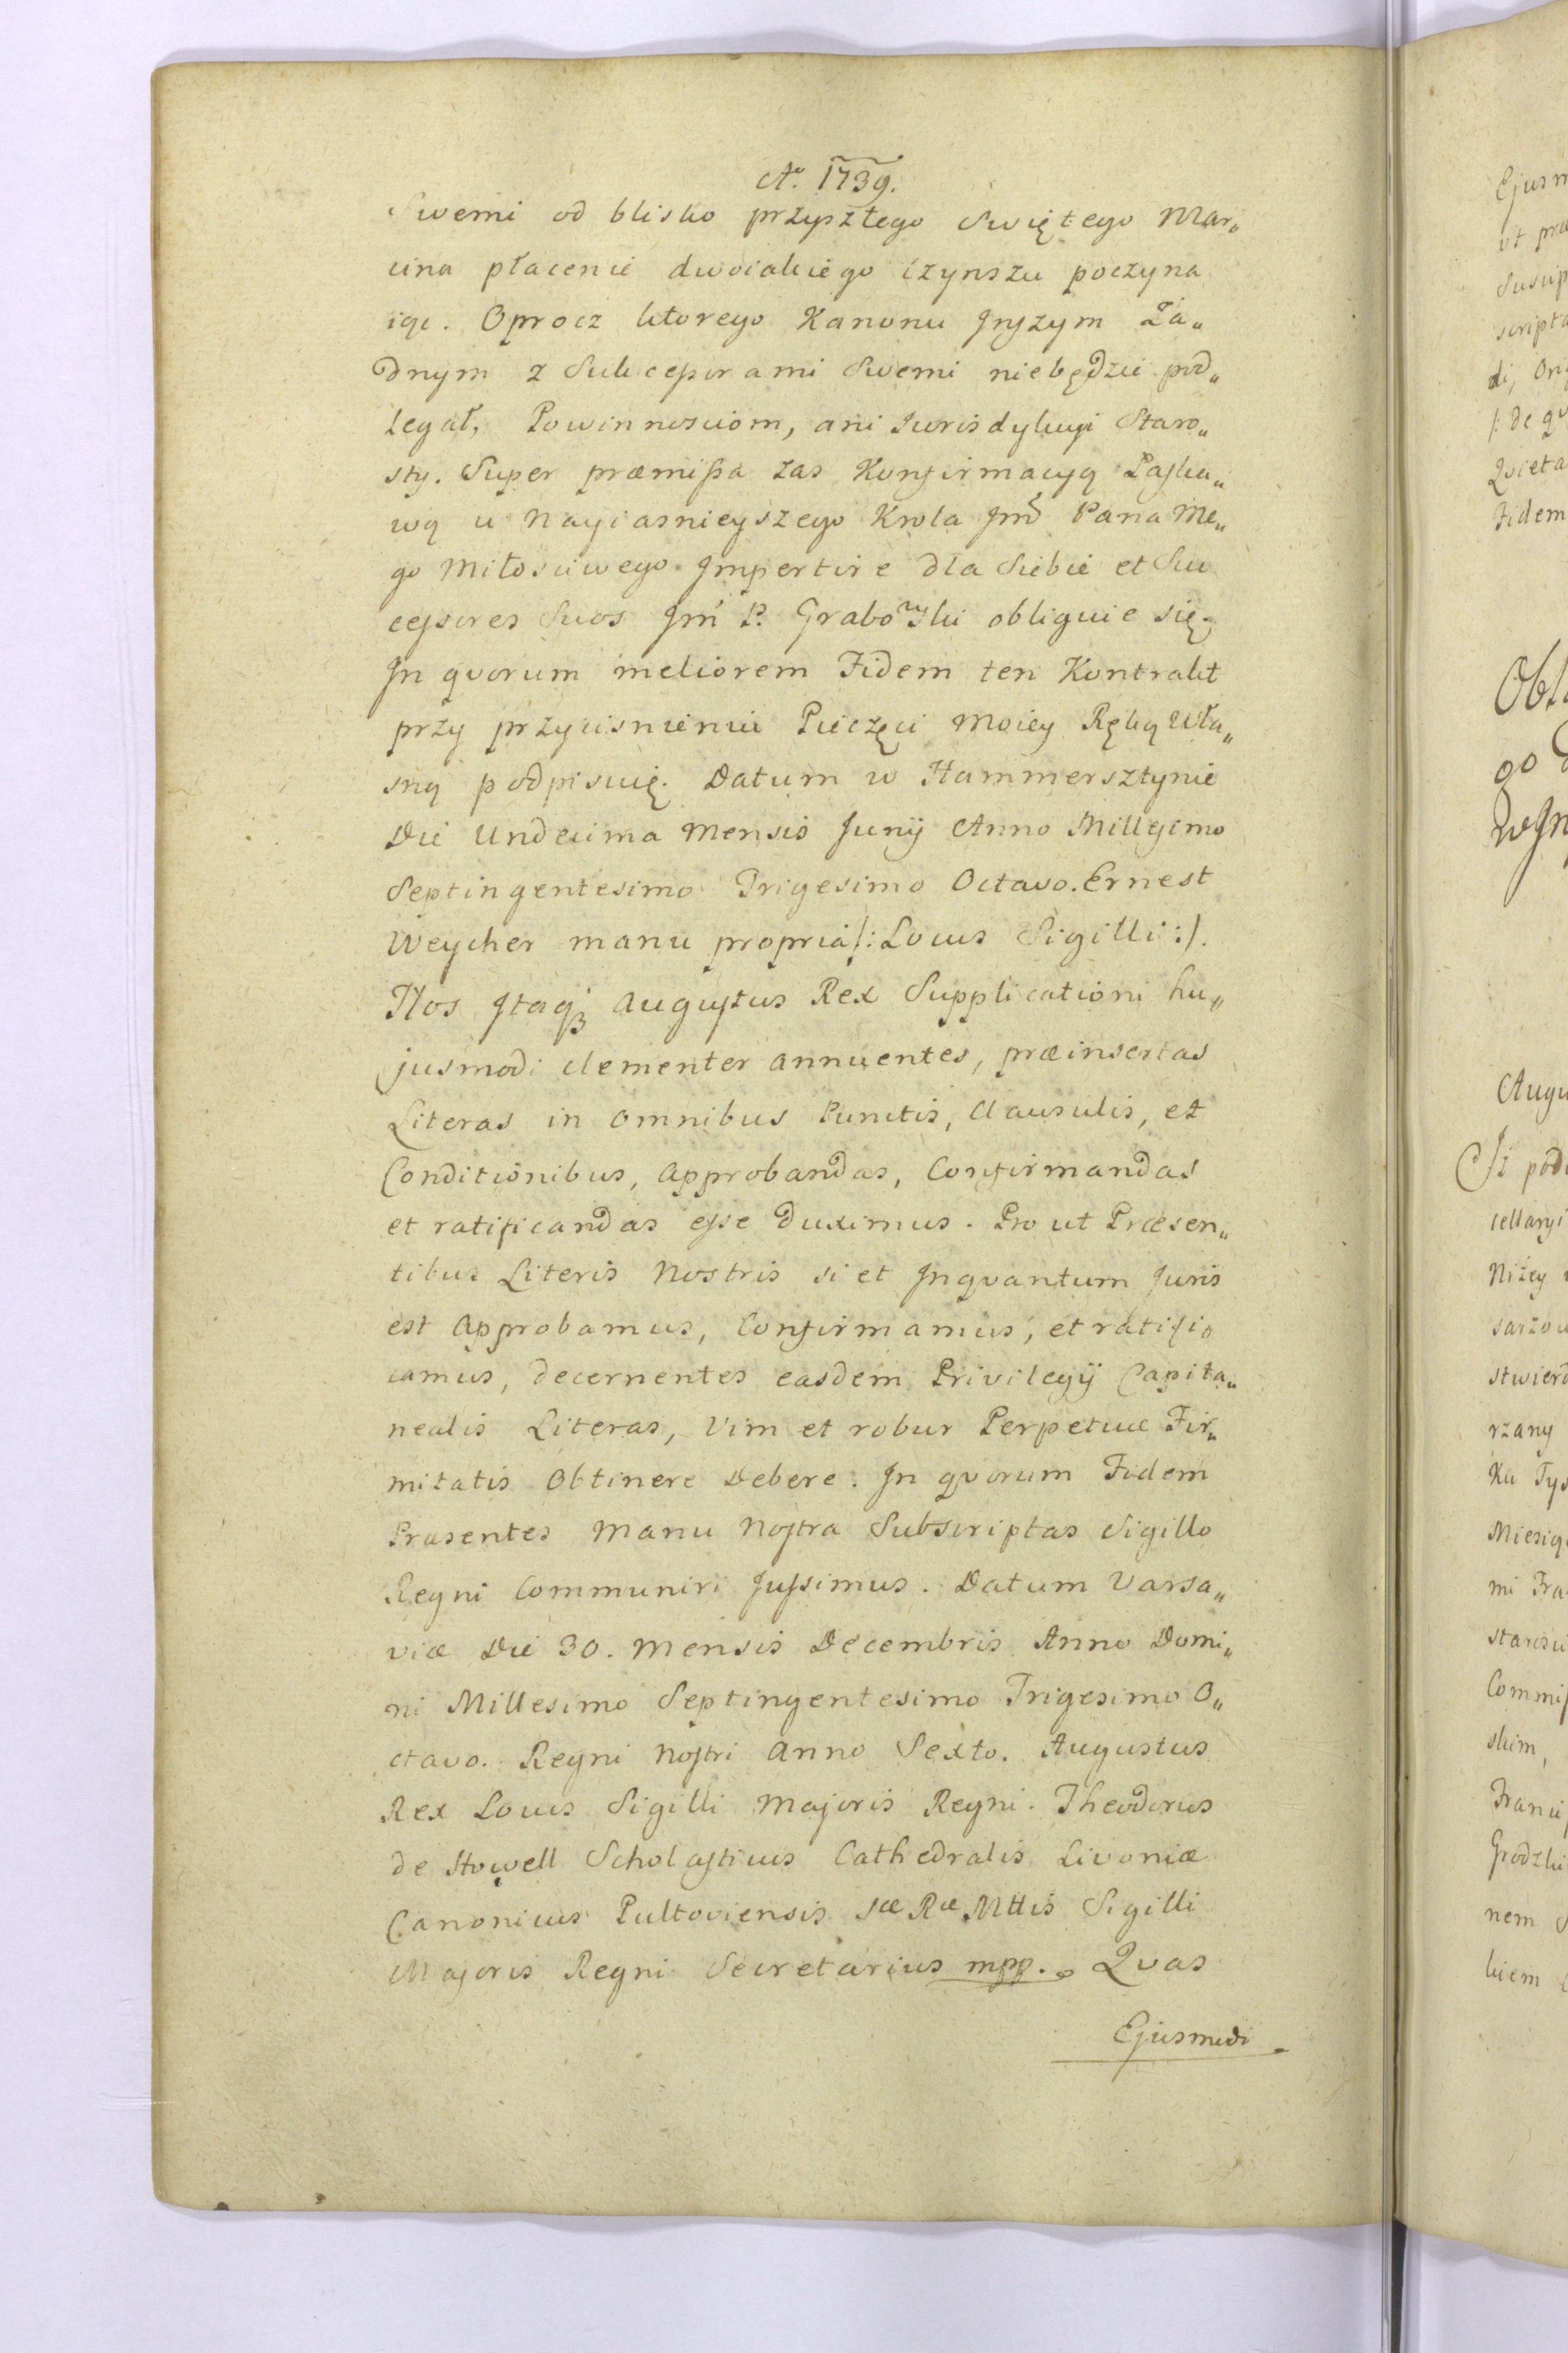 Aº. 1739.
Swemi od blisko przyszłego Swiętego Mar„
cina płacenie dwoiakiego Czynszu poczyna
iąc. Oprocz ktorego Kanonu Inszym Ża„
dnym z Sukcessorami Swemi niebędzie pod„
legał, Powinnosciom, ani Jurisdykcyi Staro„
sty. Super præmissa zas Konfirmacyą Łaska„
wą u Nayiasnieyszego Krola Jmć Pana Me„
go Miłosciwego Impertire dla Siebie et Suc
cessores Suos Jmć P. Grabowski obliguie się.
In qvorum meliorem Fidem ten Kontrakt
przy przycisnieniu Pieczęci Moiey Ręką Wła„
sną podpisuię. Datum w Hammersztynie
Die Undecima Mensis Junij Anno Millesimo
Septingentesimo Trigesimo Octavo. Ernest
Weycher manu propria /: Locus Sigilli :/.
Nos Itaqȝ Augustus Rex Supplicationi hu„
jusmodi clementer annuentes, præinsertas
Literas in omnibus Punctis, Clausulis, et
Conditionibus, approbandas, Confirmandas
et ratificandas esse duximus. Pro ut Præsen„
tibus Literis Nostris si et Inqvantum Juris
est Approbamus, Confirmamus, et ratifi„
camus, decernentes easdem Privilegij Capita„
nealis Literas, Vim et robur Perpetuæ Fir„
mitatis Obtinere Debere. In qvorum Fidem
Præsentes Manu Nostra Subscriptas Sigillo
Regni Communiri Jussimus. Datum Varsa„
viæ Die 30. Mensis Decembris Anno Domi„
ni Millesimo Septingentesimo Trigesimo O„
ctavo. Regni Nostri Anno Sexto. Augustus
Rex Locus Sigilli Majoris Regni. Theodorus
de Howell Scholasticus Cathedralis Livoniæ
Canonicus Pultoviensis Sæ Ræ Mttis Sigilli
Majoris Regni Secretarius mpp. Qvas
Ejusmodi